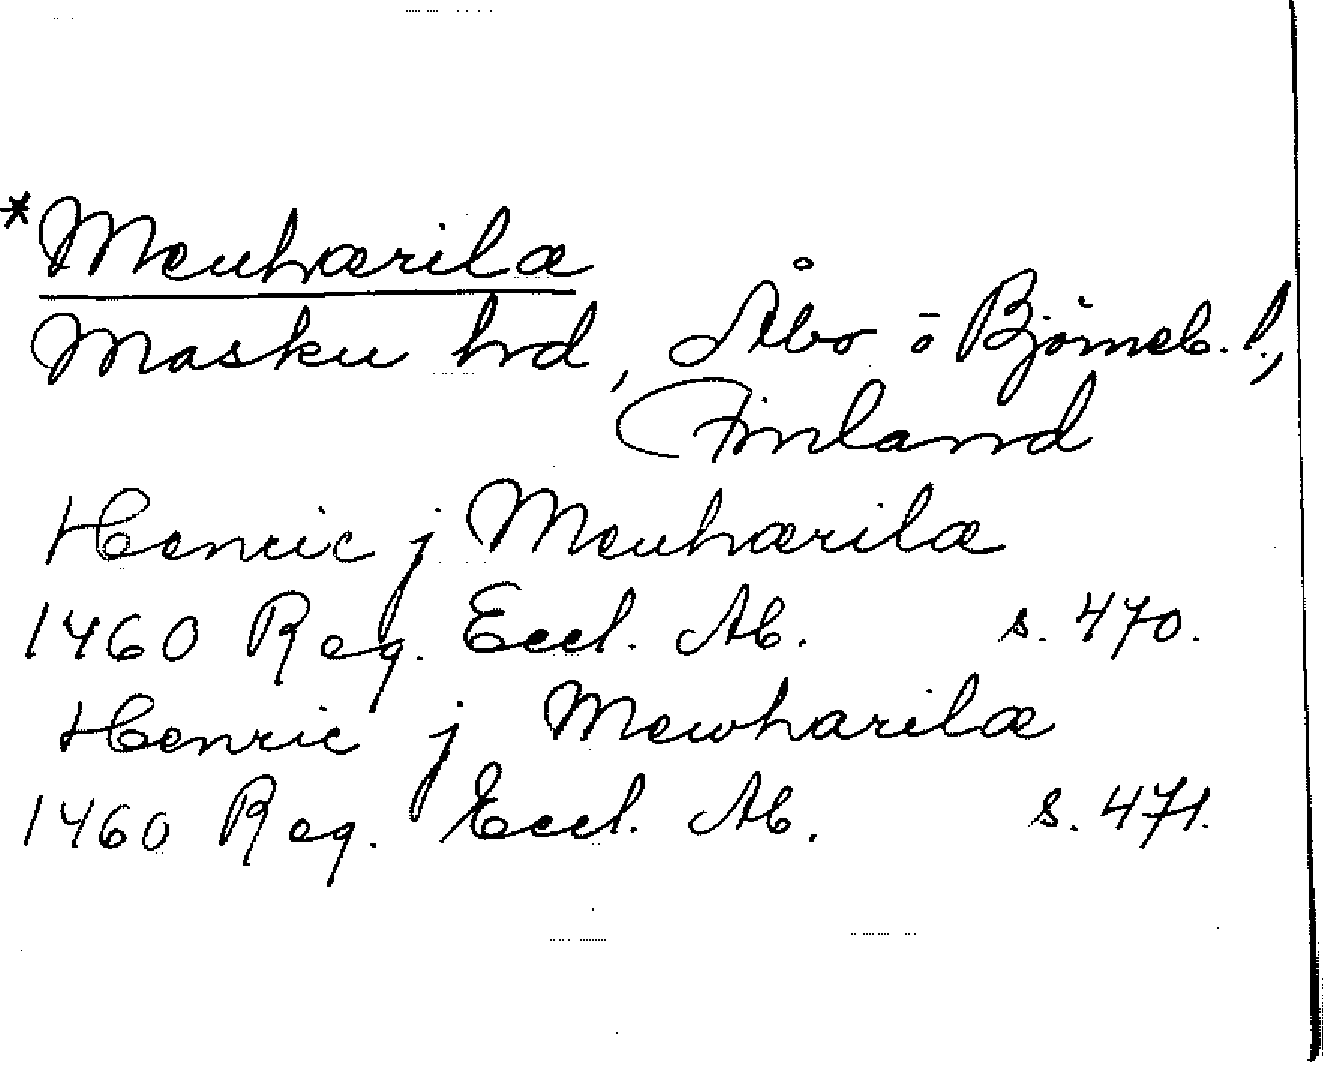 *Meuharila
Masku hrd, Åbo o Björneb. l.,
Finland
Henric j Meuharila
1460 Reg. Eccl. Ab. s. 470.
Henric j Mewharila
1460 Reg. Eccl. Ab. s. 471.